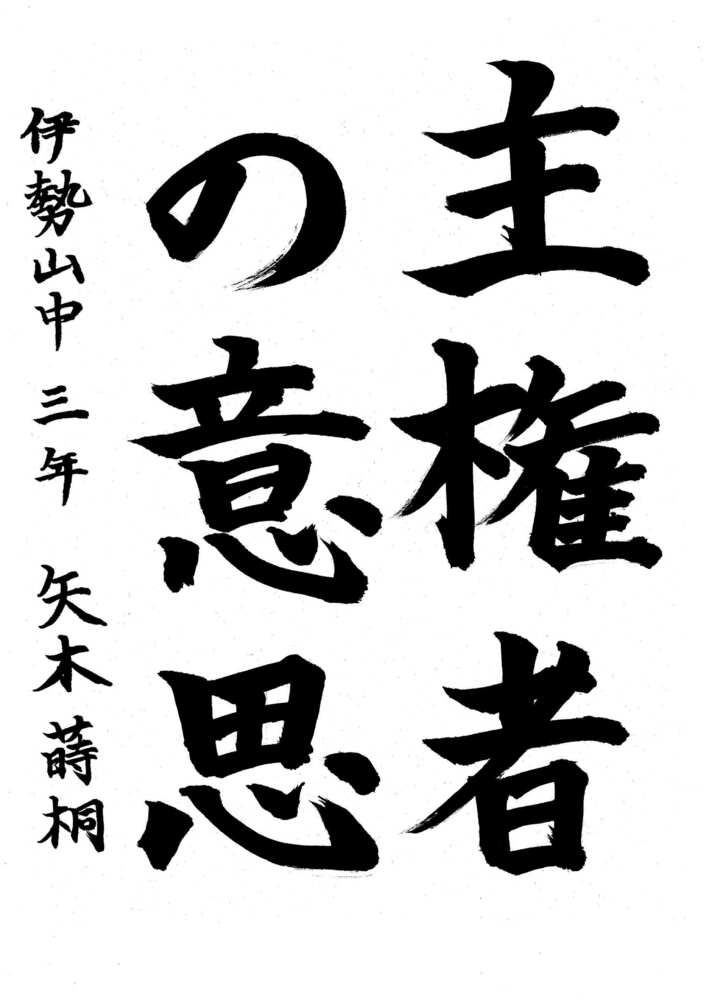 主権者
の意思
伊勢山中 三年 矢木 蒔桐